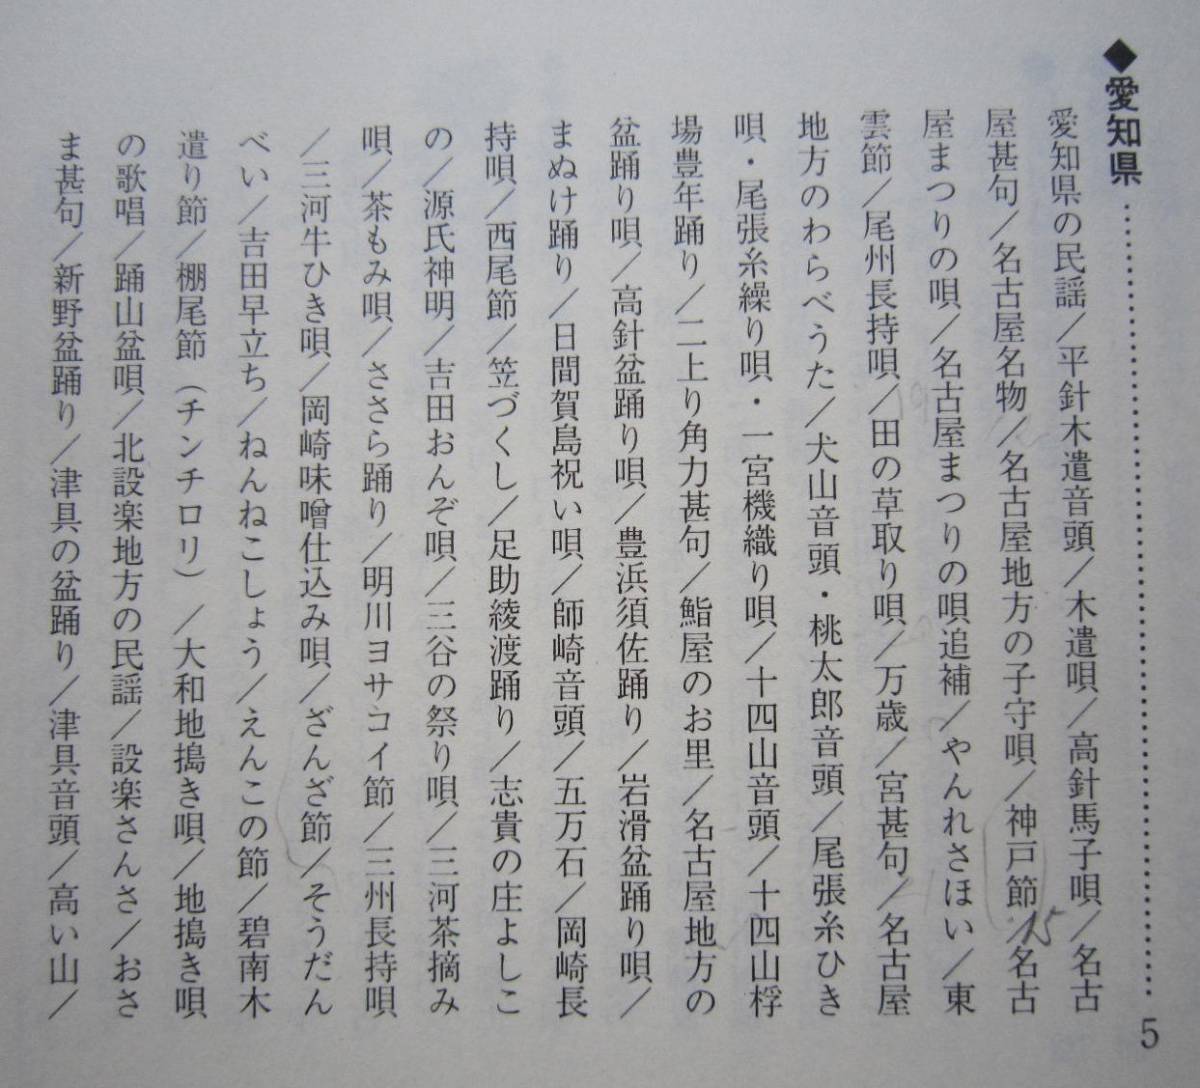 ◆愛知県……………………………………5
愛知県の民謡／平針木遣音頭／木遣唄／高針馬子唄／名古
屋甚句／名古屋名物／名古屋地方の子守唄／神戸節／名古
15
屋まつりの唄／名古屋まつりの唄追補／やんれさほい／東
雲節／尾州長持唄／田の草取り唄／万歳／宮甚句／名古屋
地方のわらべうた／犬山音頭・桃太郎音頭／尾張糸ひき
唄・尾張糸繰り唄・一宮機織り唄／十四山音頭／十四山桴
場豊年踊り／二上り角力甚句／鮨屋のお里／名古屋地方の
盆踊り唄／高針盆踊り唄／豊浜須佐踊り／岩滑盆踊り唄／
まぬけ踊り／日間賀島祝い唄／師崎音頭／五万石／岡崎長
持唄／西尾節／笠づくし／足助綾渡踊り／志貴の庄よしこ
の／源氏神明／吉田おんぞ唄／三谷の祭り唄／三河茶摘み
唄／茶もみ唄／ささら踊り／明川ヨサコイ節／三州長持唄
／三河牛ひき唄／岡崎味噌仕込み唄／ざんざ節／そうだん
べい／吉田早立ち／ねんねこしょう／えんこの節／碧南木
遣り節／棚尾節（チンチロリ）／大和地搗き唄／地搗き唄
の歌唱／踊山盆唄／北設楽地方の民謡／設楽さんさ／おさ
ま甚句／新野盆踊り／津具の盆踊り／津具音頭／高い山／